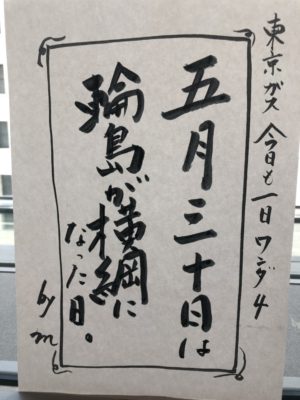 東京ガス 今日も一日ワンダ4
五月三十日は
輪島が横綱に
なった日。
by m